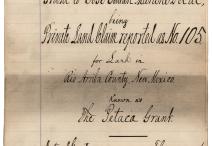 being
Private Land Claim reported as No. 105
for Land in
Rio Arriba County, New Mexico.
Known as
The Petaca Grant.